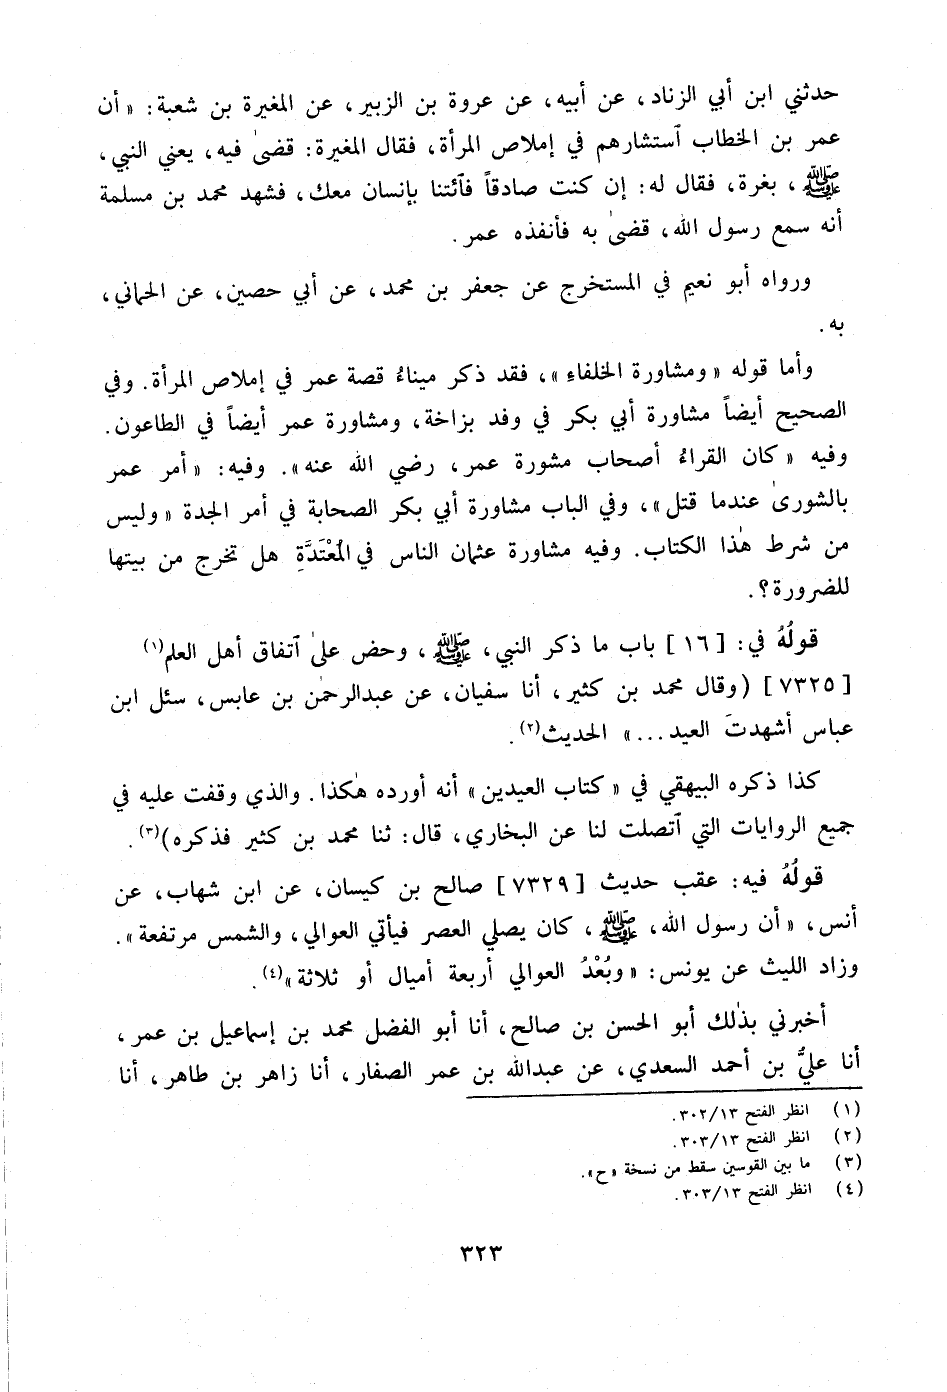 حدثني ابن أبي الزناد، عن أبيه، عن عروة بن الزبير، عن المغيرة بن شعبة: «أن
عمر بن الخطاب ٱستشارهم في إملاص المرأة، فقال المغيرة: قضىٰ فيه، يعني النبي،
ﷺ، بغرة، فقال له: إن كنت صادقاً فٱئتنا بإنسان معك، فشهد محمد بن مسلمة
أنه سمع رسول الله، قضىٰ به فأنفذه عمر.
ورواه أبو نعيم في المستخرج عن جعفر بن محمد، عن أبي حصين، عن الحماني،
به.
وأما قوله «ومشاورة الخلفاء»، فقد ذكر ميناءُ قصة عمر في إملاص المرأة. وفي
الصحيح أيضاً مشاورة أبي بكر في وفد بزاخة، ومشاورة عمر أيضاً في الطاعون.
وفيه «كان القراءُ أصحاب مشورة عمر، رضي الله عنه». وفيه: «أمر عمر
بالشورىٰ عندما قتل»، وفي الباب مشاورة أبي بكر الصحابة في أمر الجدة «وليس
من شرط هٰذا الكتاب. وفيه مشاورة عثمان الناس في المُعْتَدَّةِ هل تخرج من بيتها
للضرورة؟.
قولُهُ في: [١٦] باب ما ذكر النبي، ﷺ، وحض علىٰ ٱتفاق أهل العلم(١)
[٧٣٢٥] (وقال محمد بن كثير، أنا سفيان، عن عبدالرحمٰن بن عابس، سئل ابن
عباس أشهدتَ العيد...» الحديث(٢).
كذا ذكره البيهقي في «كتاب العيدين» أنه أورده هٰكذا. والذي وقفت عليه في
جميع الروايات التي ٱتصلت لنا عن البخاري، قال: ثنا محمد بن كثير فذكره)(٣).
قولُهُ فيه: عقب حديث [٧٣٢٩] صالح بن كيسان، عن ابن شهاب، عن
أنس، «أن رسول الله، ﷺ، كان يصلي العصر فيأتي العوالي، والشمس مرتفعة».
وزاد الليث عن يونس: «وبُعْدُ العوالي أربعة أميال أو ثلاثة»(٤).
أخبرني بذٰلك أبو الحسن بن صالح، أنا أبو الفضل محمد بن إسماعيل بن عمر،
أنا عليُّ بن أحمد السعدي، عن عبدالله بن عمر الصفار، أنا زاهر بن طاهر، أنا
(١) انظر الفتح ٣٠٢/١٣.
(٢) انظر الفتح ٣٠٣/١٣.
(٣) ما بين القوسين سقط من نسخة «ح».
(٤) انظر الفتح ٣٠٣/١٣.
٣٢٣